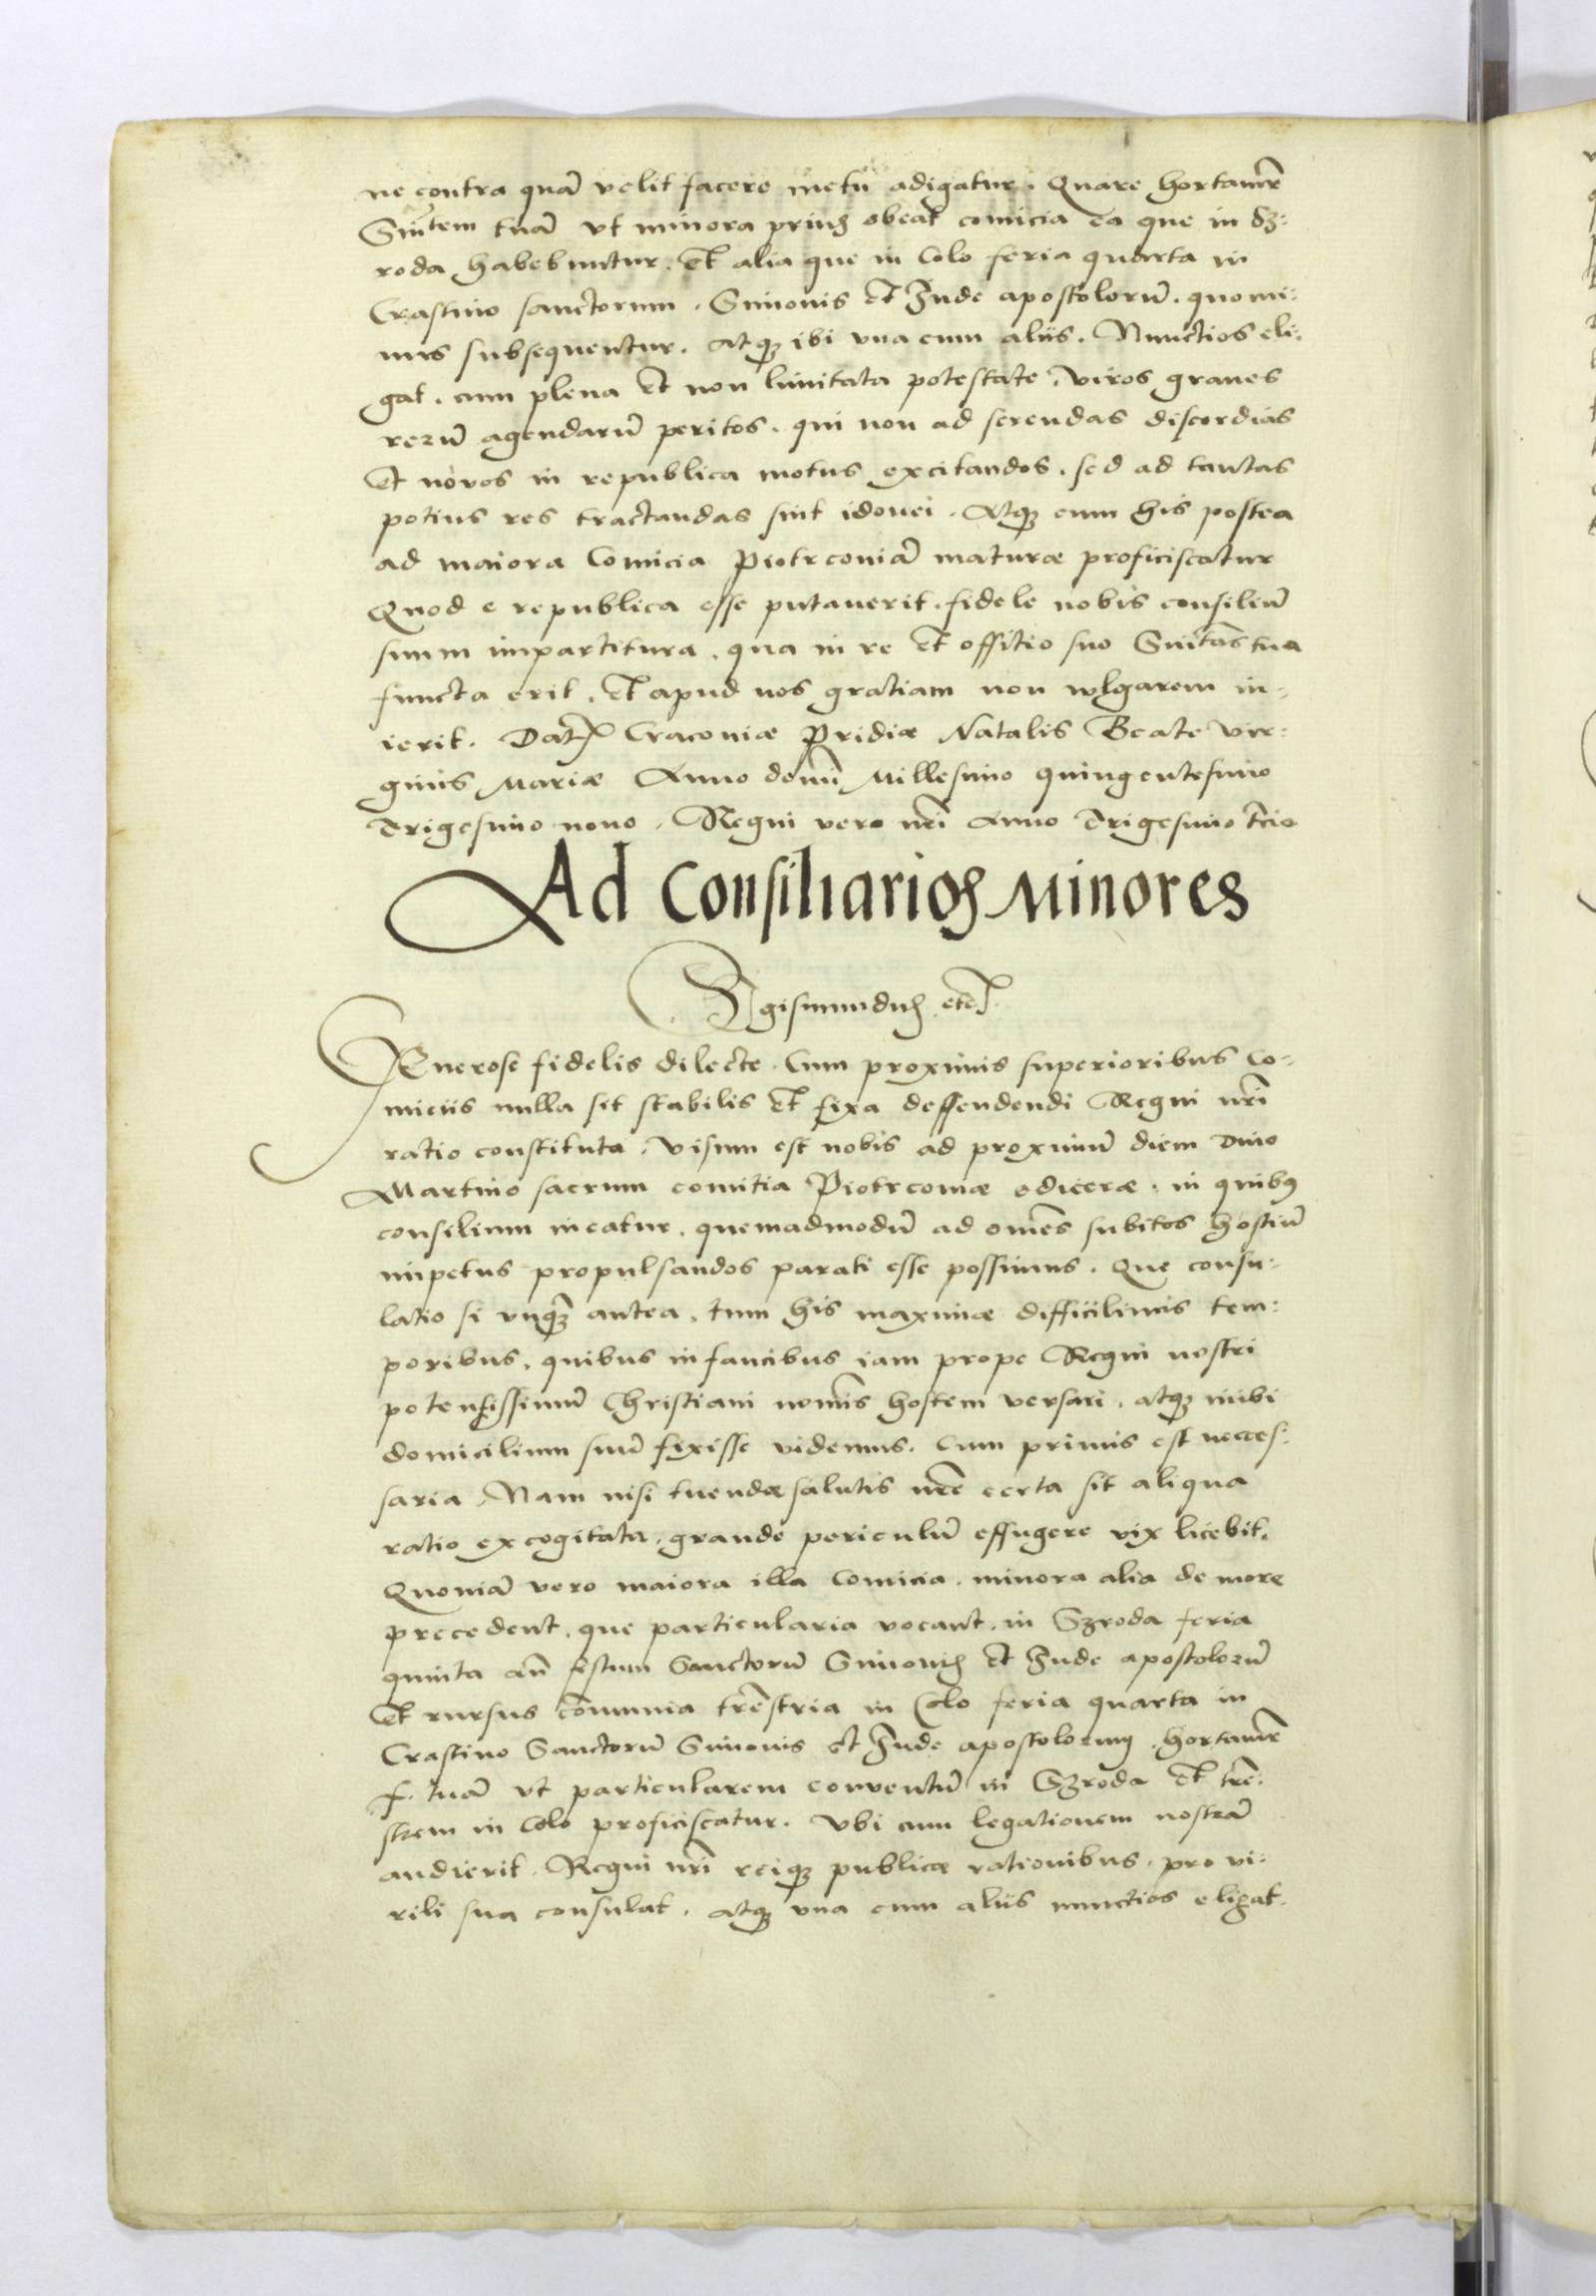 ne contra quā velit facere metu adigatur. Quare hortamr̄
Sin̄tem tuā ut minora prius obeat comicia ea que in Sz:
roda habebuntur. Et alia que in Colo feria quarta in
Crastino sanctorum. Simonis et Jude apostolorū. quomi:
nus subsequentur. atqȝ ibi vna cum aliis. Nunctios eli:
gat. cum plena et non limitata potestate. viros graues
rerū agendarū peritos. qui non ad serendas discordias
Et novos in republica motus excitandos. sed ad tantas
potius res tractandas sint idonei. Atqȝ cum his postea
ad maiora Comicia Piotrconiā maturæ proficiscatur
Quod e republica esse putauerit. fidele nobis consiliū
suum impartitura. qua in re et offitio suo Sin̄tas tua
functa erit. Et apud nos gratiam non wlgarem in-
ierit. Dat. Craconiæ Pridiæ Natalis Beate Vir:
ginis Mariæ Anno domī Millesimo quingentesimo
Trigesimo nono. Regni vero nr̄i Anno Trigesimo tc̄io
Ad Consiliarios Minores
Sigismundus etc.
Generose fidelis dilecte. Cum proximis superioribus Co-
miciis nulla sit stabilis et fixa deffendendi Regni nr̄i
ratio constituta. visum est nobis ad proximū diem Diuo
Martino sacrum comitia Piotrconiæ ediceræ. in quibꝰ
consilium ineatur. quemadmodū ad omēs subitos hostiū
impetus propulsandos parati esse possimus. Que consu-
latio si vnqȝ antea. tum his maximæ difficilimis tem:
poribus. quibus in faucibus iam prope Regni nostri
potentissimū Christiani nomīs hostem versari. atqȝ inibi
domicilium suū fixisse videmus. Cum primis est necces:
saria. Nam nisi tuendæ salutis nr̄e certa sit aliqua
ratio excogitata. grande periculū effugere vix licebit.
Quoniā vero maiora illa Comicia. minora alia de more
precedent. que particularia vocant. in Szroda feria
quinta an̄ festum Sanctorū Simonis et Jude apostolorū
Et rursus cōmunia trēstria in Colo feria quarta in
Crastino Sanctorū Simonis et Jude apostolorum. hortamr̄
f. tuā ut particularem conventū in Szroda Et trē:
strem in Colo proficiscatur. Vbi cum legationem nostrā
audierit. Regni nr̄i reiqȝ publicæ rationibus. pro vi:
rili sua consulat. atqȝ vna cum aliis nunctios eligat.